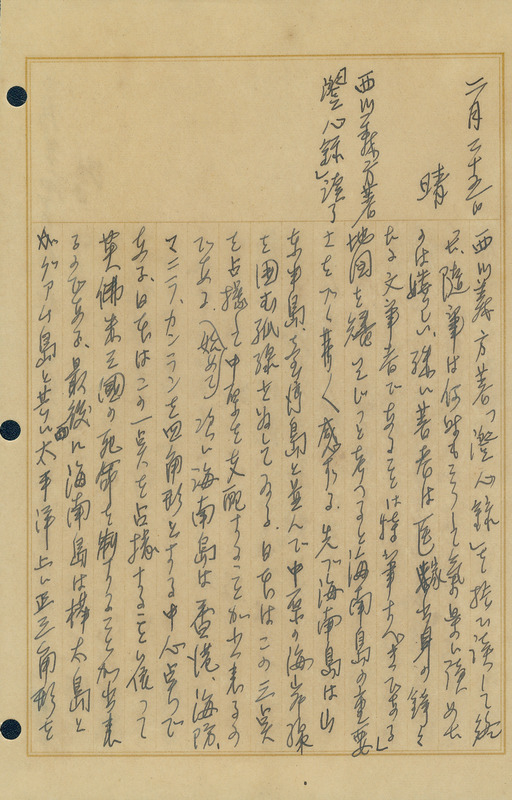 二月二十五日
晴
西川義方著
「澄心録」読了
西川義方著「澄心録」を 読して
た、随筆は何時も 気 読めた
のは嬉しい、殊に著者は医家出身の錚々
たる文筆者であることは特筆すべきである」
地図を じつと考へると海南島の重要
さをつく〴〵感ずる、先づ海南島は山
東半島、台湾島と並んで中原の海岸線
を囲む弧線を為してゐる、日本はこの三点
を占拠して中原を支配することが出来るの
である、(始めて)次に海南島は香港、海防、
マニラ、カンランを四角形とする中心点で
ある、日本はこの一点を占拠することに依って
英佛米三國の死命を制することが出来
るのである、最後に海南島は樺太島と
グアム島と共に太平洋上に正三角形を